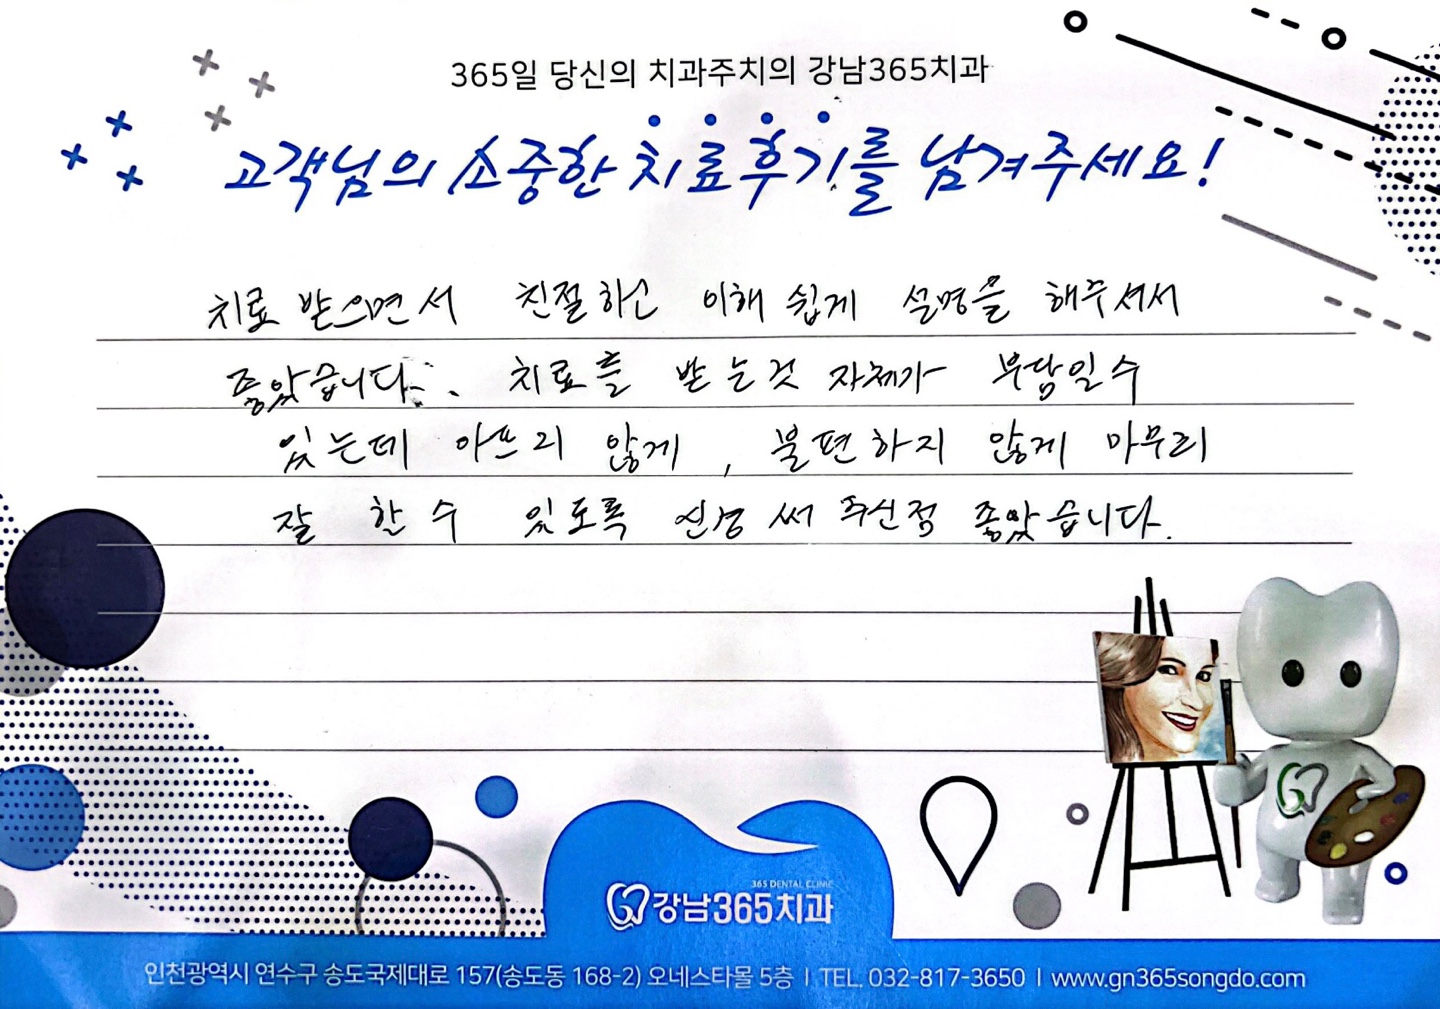 365일 당신의 치과주치의 강남365치과
고객님의 소중한 치료후기를 남겨주세요!
치료 받으면서 친절하고 이해 쉽게 설명을 해주셔서
좋았습니다. 치료를 받는것 자체가 부담일수
있는데 아프지 않게, 불편하지 않게 마무리
잘 할 수 있도록 신경 써 주신점 좋았습니다.
365 DENTAL CLINIC
강남365치과
인천광역시 연수구 송도국제대로 157(송도동 168-2) 오네스타몰 5층 | TEL. 032-817-3650 | www.gn365songdo.com